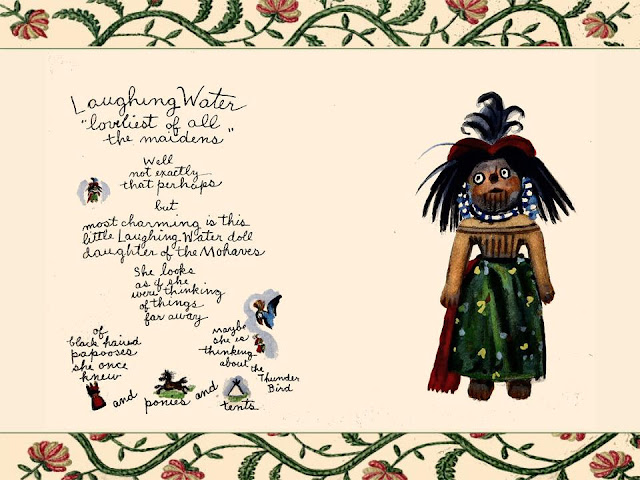 Laughing Water
"loveliest of all
the maidens"
Well
not exactly
that perhaps
but
most charming is this
little Laughing Water doll
daughter of the Mohaves
She looks
as if she
were thinking
of things
far away
of
black haired
papooses
she once
knew
and ponies and tents
maybe
she is
thinking
about the
Thunder
Bird